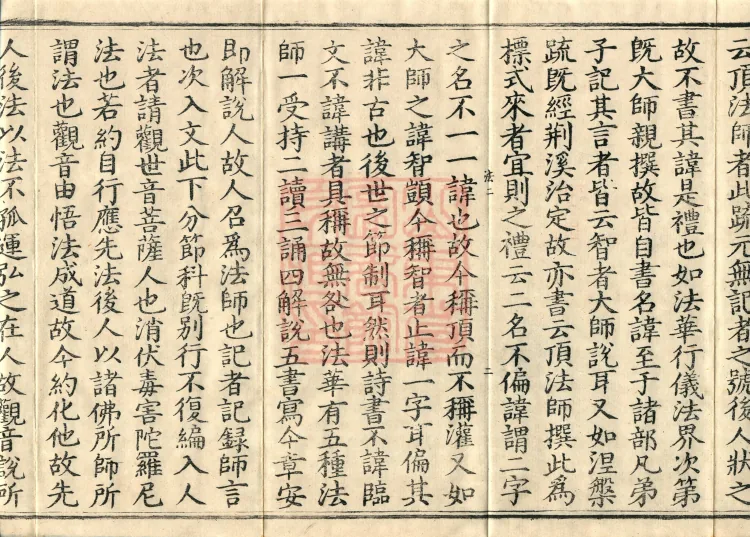 云頂法師者此疏元無記者之號後人狀之
故不書其諱是禮也如法華行儀法界次第
既大師親撰故皆自書名諱至于諸部凡弟
子記其言者皆云智者大師說耳又如涅槃
疏既經荊溪治定故亦書云頂法師撰此為
標式來者宜則之禮云二名不偏諱謂二字
之名不一一諱也故今稱頂而不稱灌又如
大師之諱智顗今稱智者止諱一字耳偏其
諱非古也後世之節制耳然則詩書不諱臨
文不諱講者具稱故無咎也法華有五種法
師一受持二讀三誦四解說五書寫今章安
即解說人故人召為法師也記者記錄師言
也次入文此下分節科既別行不復編入人
法者請觀世音菩薩人也消伏毒害陀羅尼
法也若約自行應先法後人以諸佛所師所
謂法也觀音由悟法成道故今約化他故先
人後法以法不孤運弘之在人故觀音說所
法二
二